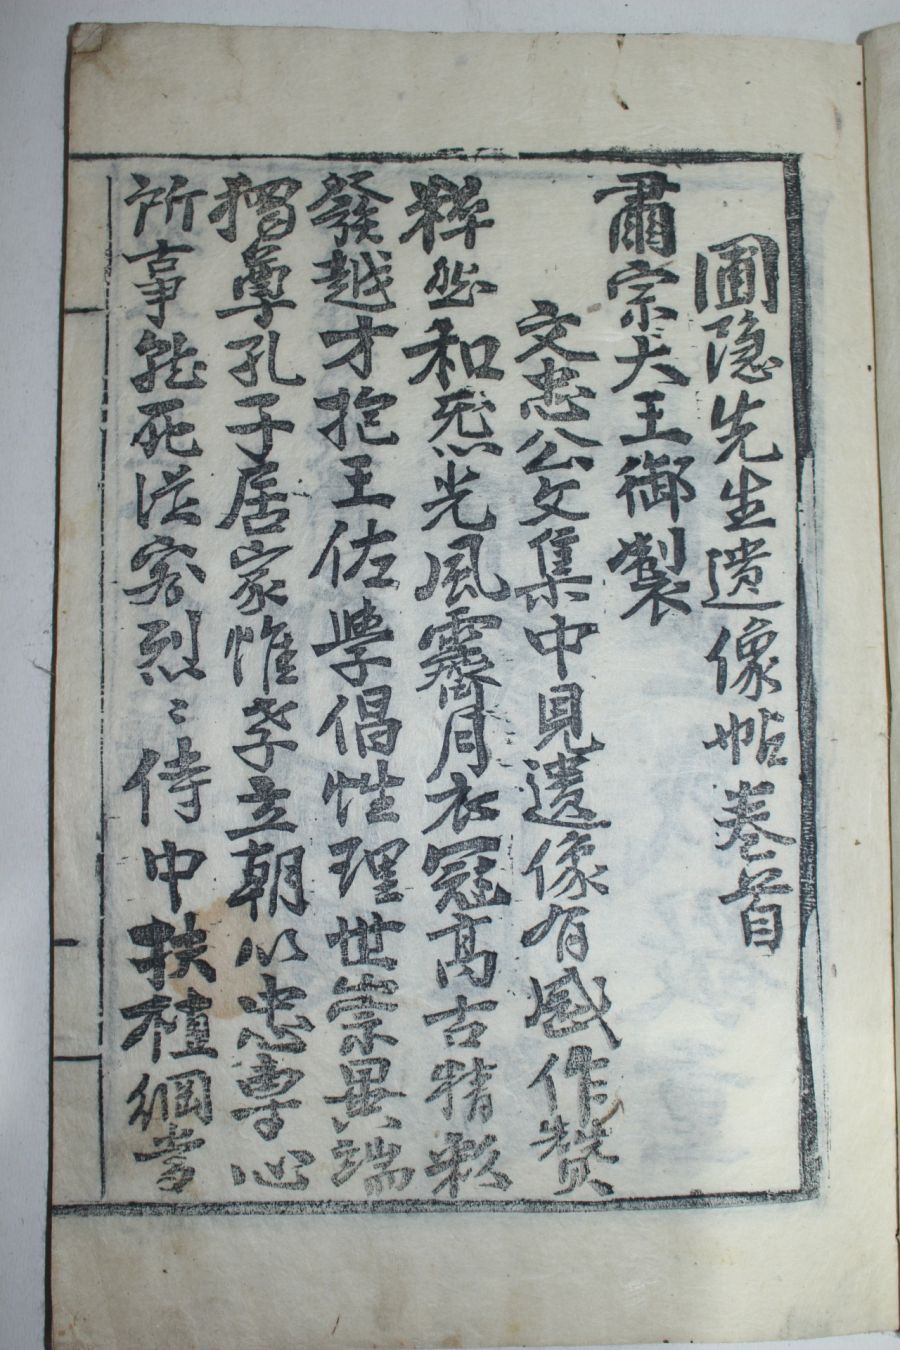 圃隐先生遺像帖卷首
肅宗大王御製
文忠公文集中見遺像有感作赞
粹然和炁光風霽月衣冠高古精彩
發越才抱王佐學倡性理世崇異端
獨尊孔子居家惟孝立朝以忠專心
所事能死從容烈〻侍中扶植綱常